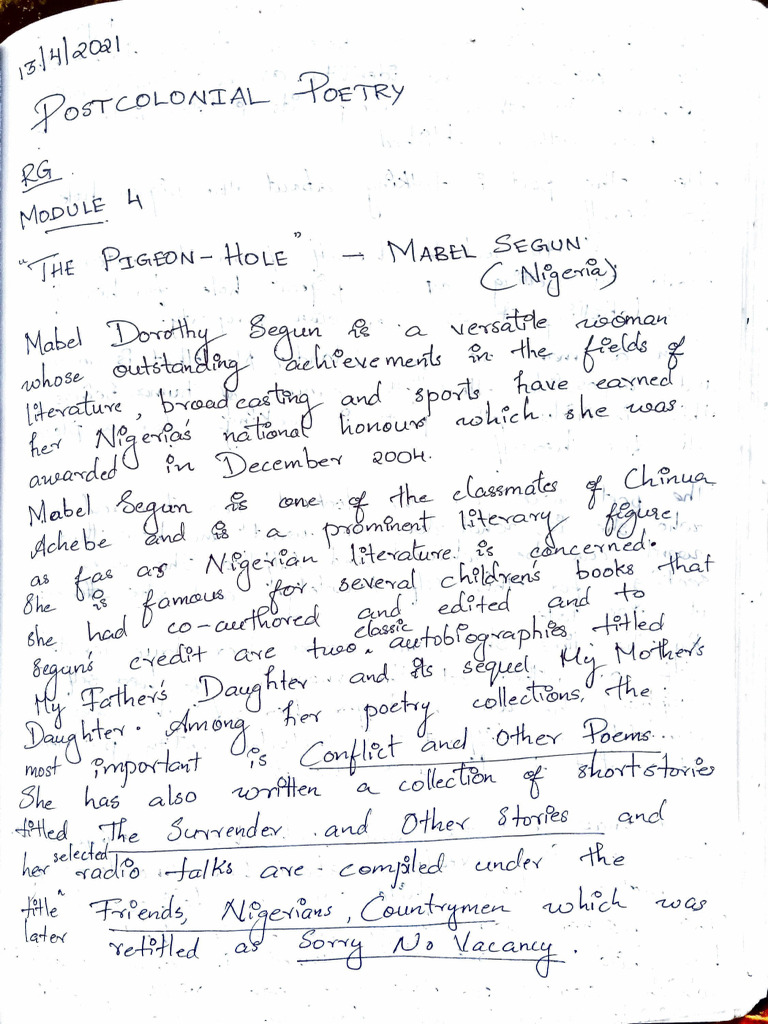 13/4/2021.
POSTCOLONIAL POETRY
RG
MODULE 4
"THE PIGEON-HOLE" – MABEL SEGUN
(Nigeria)
Mabel Dorothy Segun is a versatile woman
whose outstanding achievements in the fields of
literature, broadcasting and sports have earned
her Nigeria's national honour which she was
awarded in December 2004.
Mabel Segun is one of the classmates of Chinua
Achebe and is a prominent literary figure,
as fas as Nigerian literature is concerned.
She is famous for several children's books that
she had co-authored and edited and to
Segun's credit are two classic autobiographies titled
My Father's Daughter and its sequel My Mother's
Daughter. Among her poetry collections, the
most important is Conflict and Other Poems.
She has also written a collection of shortstories
titled The Surrender and Other Stories and
her selected radio talks are compiled under the
title "Friends, Nigerians, Countrymen" which was
later retitled as Sorry No Vacancy.